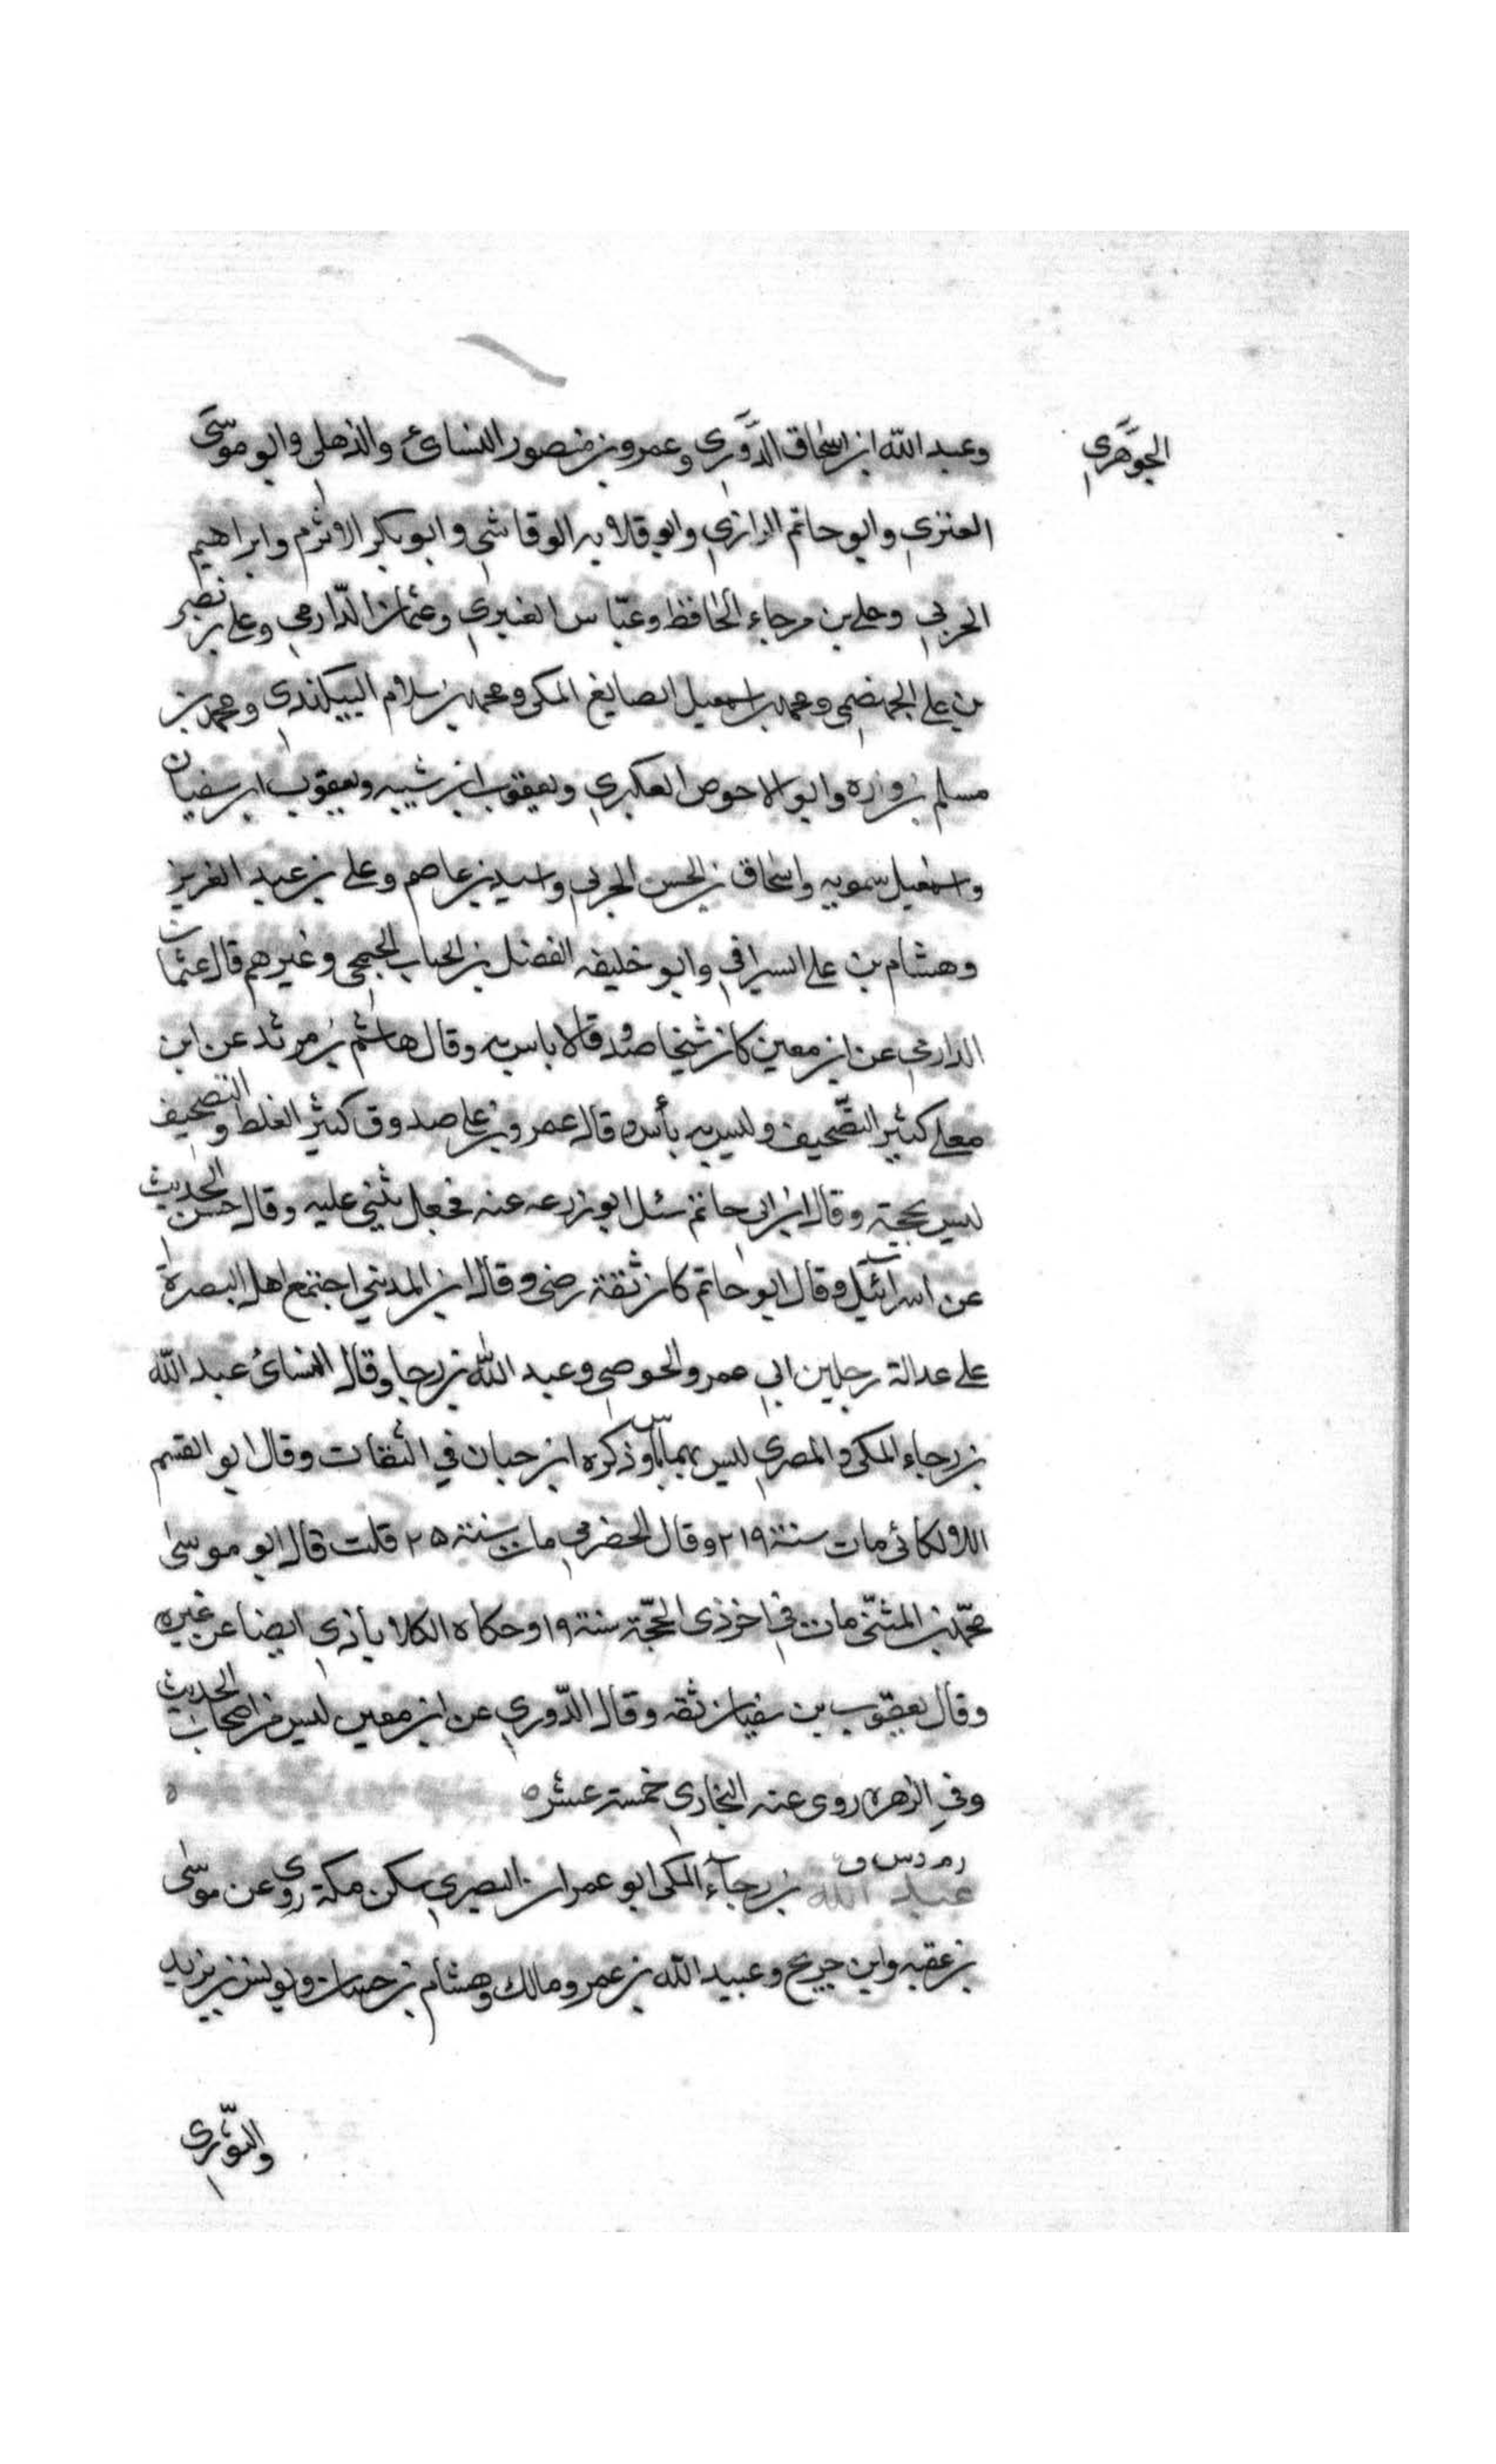 الجوهري
وعبد الله ابن اسحاق الدوري وعمرو بن منصور النسائي والذهلي وابو موسى
العنزي وابو حاتم الرازي وابو قلابه الوقاشي وابو بكر الاثرم وابراهيم
الحربي وعلي بن مرجاء الحافظ وعباس العنبري وعثمان الدارمي وعلي بن نصر
بن علي الجهضمي ومحمد بن اسمعيل الصايغ المكي ومحمد بن سلام البيكندي ومحمد بن
مسلم بن واره وابو الاحوص العكبري ويعقوب ابن شيبه ويعقوب ابن سفيان
واسمعيل سمويه واسحاق بن الحسن الحربي واسيد بن عاصم وعلي بن عبد العزيز
وهشام بن علي السيرافي وابو خليفه الفضل بن الحباب الجمحي وغيرهم قال عثمان
الدارمي عن ابن معين كان شيخا صدوقا لا باس به وقال هاشم بن مرثد عن ابن
معلي كثير التصحيف وليس به بأس وقال عمرو بن علي صدوق كثير الغلط والتصحيف
ليس بحجة وقال ابن ابي حاتم سئل ابو زرعه عنه فجعل يثني عليه وقال حسن الحديث
عن اسرائيل وقال ابو حاتم كان ثقة رضي وقال ابن المديني اجتمع اهل البصرة
على عدالة رجلين ابي عمرو الحوضي وعبد الله بن رجا وقال النسائي عبد الله
بن رجاء المكي والمصري ليس بهما باس وذكره ابن حبان في الثقات وقال ابو القسم
اللالكائي مات سنة ٢١٩ وقال الحضرمي مات سنة ٢٥ قلت قال ابو موسى
محمد بن المثنى مات في اخر ذي الحجة سنة ١٩ وحكاه الكلاباذي ايضا عن غيره
وقال يعقوب بن سفيان ثقه وقال الدوري عن ابن معين ليس من اصحاب الحديث
وفي الزهره روى عنه البخاري خمسة عشر ه
ر م د س ق
عبد الله بن رجاء المكي ابو عمران البصري سكن مكة روى عن موسى
بن عقبه وابن جريج وعبيد الله بن عمر ومالك وهشام بن حسان ويونس بن يزيد
والثوري